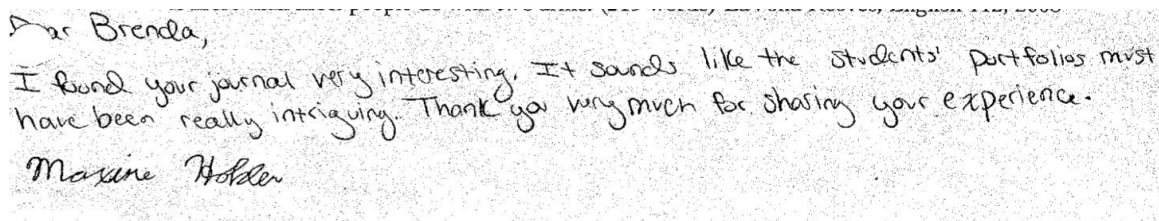 Dear Brenda,
I found your journal very interesting. It sounds like the students' portfolios must
have been really intriguing. Thank you very much for sharing your experience.
Maxine Holder